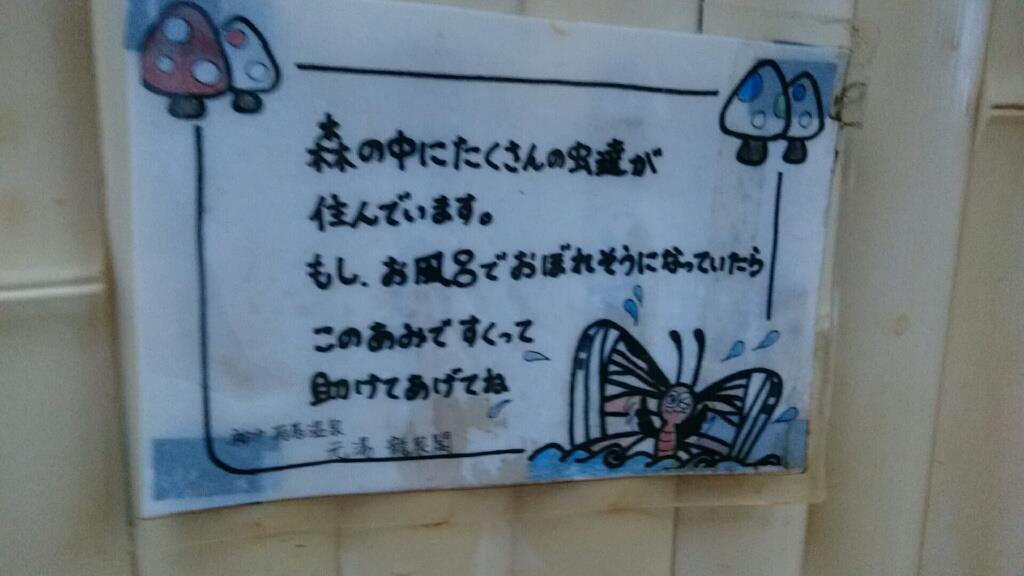 森の中にたくさんの虫達が
住んでいます。
もし、お風呂でおぼれそうになっていたら
このあみですくって
助けてあげてね
元湯 龍泉閣